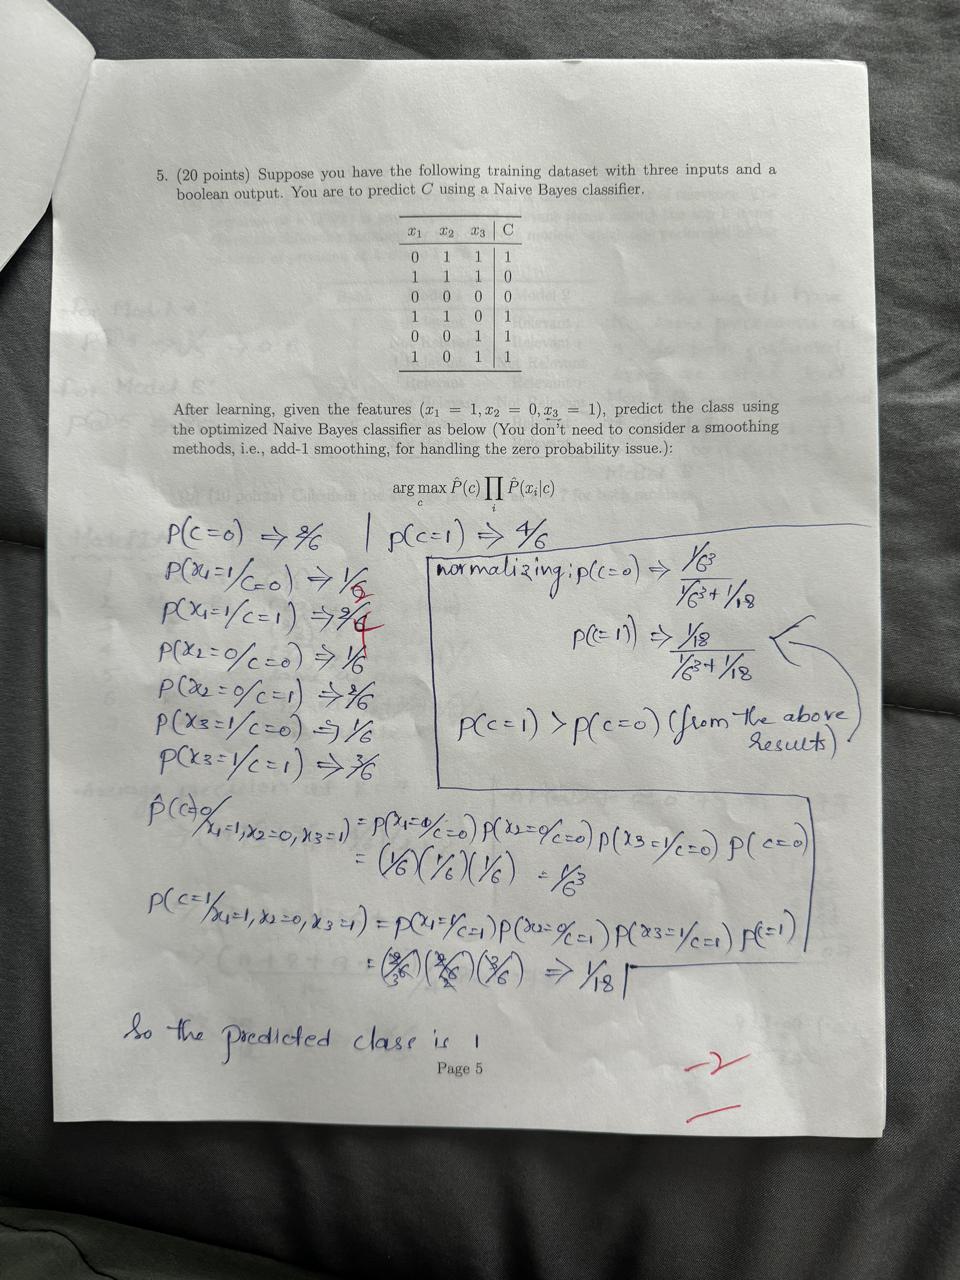 5. (20 points) Suppose you have the following training dataset with three inputs and a
boolean output. You are to predict C using a Naive Bayes classifier.
x1 x2 x3 C
0 1 1 1
1 1 1 0
0 0 0 0
1 1 0 1
0 0 1 1
1 0 1 1
After learning, given the features (x1 = 1, x2 = 0, x3 = 1), predict the class using
the optimized Naive Bayes classifier as below (You don't need to consider a smoothing
methods, i.e., add-1 smoothing, for handling the zero probability issue.):
arg max P̂(c) ∏ P̂(xi|c)
c i
P(C=0) ⇒ 2/6 | P(C=1) ⇒ 4/6
P(x1=1/C=0) ⇒ 1/6 2
P(x1=1/C=1) ⇒ 2/6 4
P(x2=0/C=0) ⇒ 1/6
P(x2=0/C=1) ⇒ 2/6
P(x3=1/C=0) ⇒ 1/6
P(x3=1/C=1) ⇒ 3/6
normalizing: P(C=0) ⇒ 1/6^3 / 1/6^3 + 1/18
P(C=1) ⇒ 1/18 / 1/6^3 + 1/18
P(C=1) > P(C=0) (from the above
results)
P̂(C=0/x1=1, x2=0, x3=1) = P(x1=0/C=0) P(x2=0/C=0) P(x3=1/C=0) P(C=0)
= (1/6)(1/6)(1/6) = 1/6^3
P(C=1/x1=1, x2=0, x3=1) = P(x1=1/C=1) P(x2=0/C=1) P(x3=1/C=1) P(C=1)
= (2/6)(2/6)(3/6) ⇒ 1/18
So the predicted class is 1
Page 5
-2